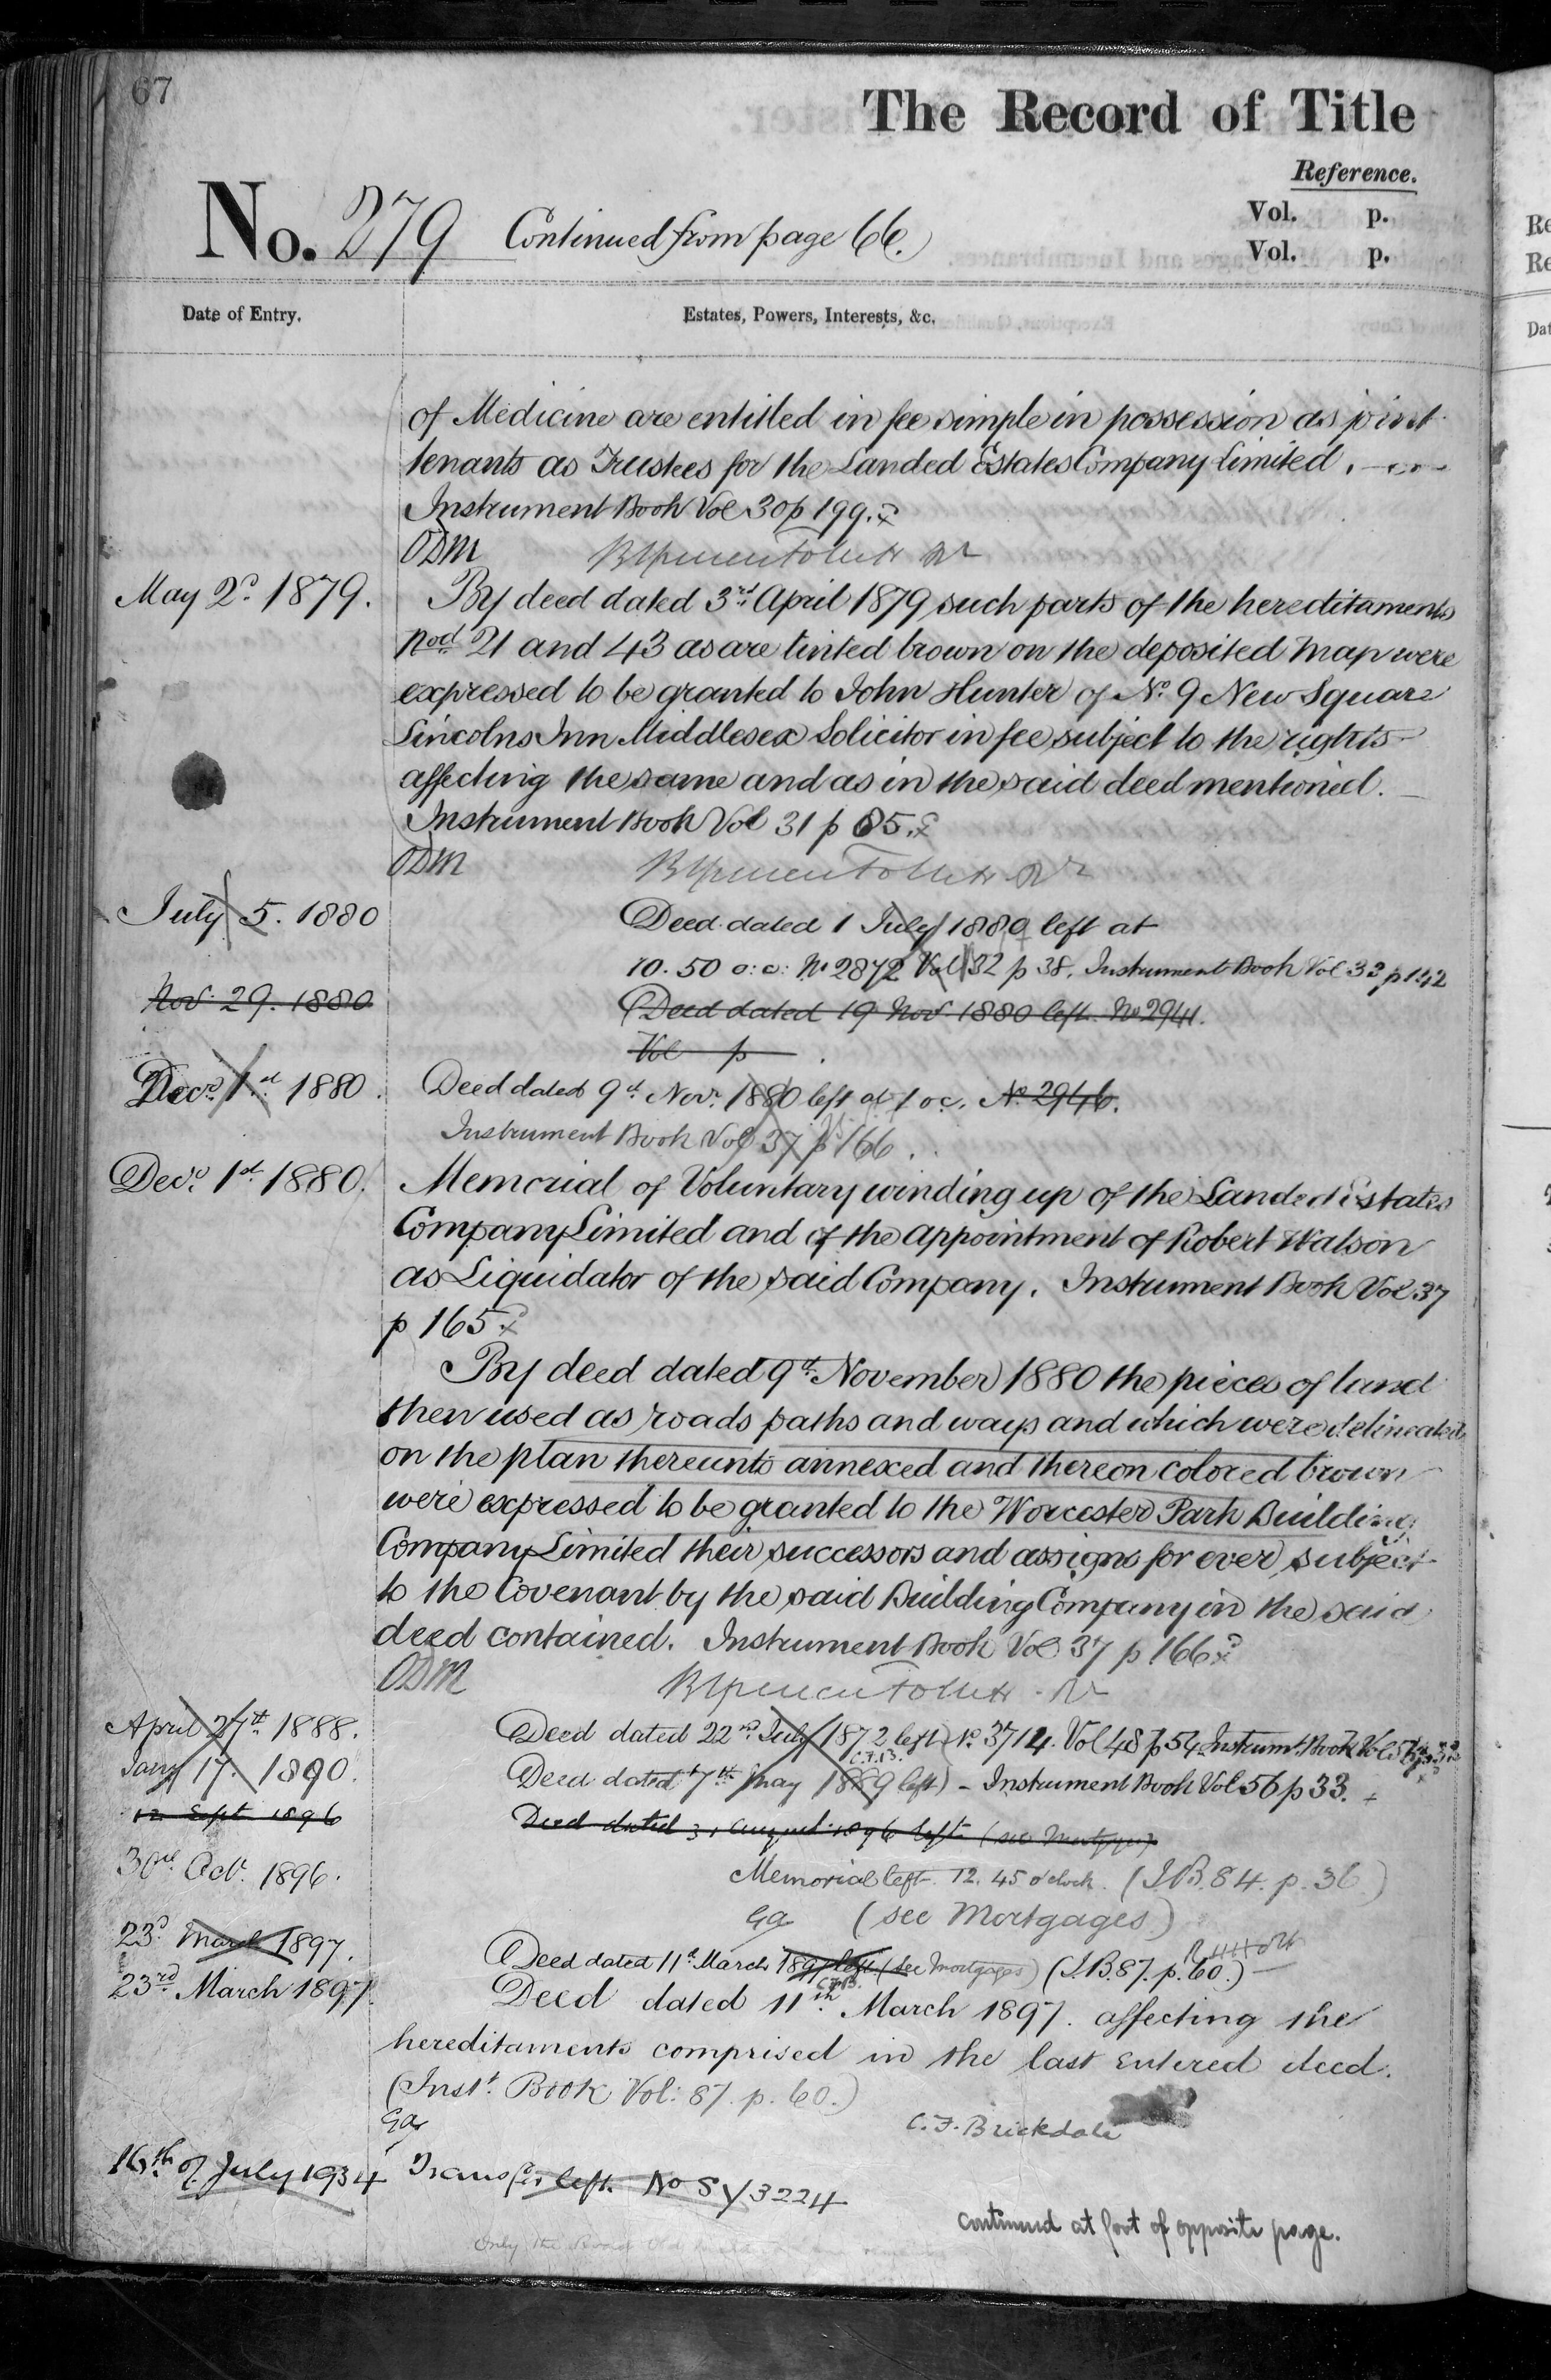 67
The Record of Title
Reference.
Vol. p.
Vol. p.
No. 279 Continued from page 66.
Date of Entry.
Estates, Powers, Interests, &c.
of Medicine are entitled in fee simple in possession as joint
tenants as Trustees for the Landed Estates Company Limited.
Instrument Book Vol 30 p 199.
ODM
May 2d 1879.
By deed dated 3rd April 1879 such parts of the hereditaments
nod 21 and 43 as are tinted brown on the deposited Map were
expressed to be granted to John Hunter of No 9 New Square
Lincolns Inn Middlesex Solicitor in fee subject to the rights
affecting the same and as in the said deed mentioned.
Instrument Book Vol 31 p 85.
ODM
July 5. 1880
Deed dated 1 July 1880 left at
10.50 o:c: No 2872 Vol 32 p 38. Instrument Book Vol 33 p 142
Nov. 29. 1880
Deed dated 19 Nov. 1880 left No 2941.
Vol p
Decr 1st 1880.
Deed dated 9th Novr 1880 left at 1 oc. No 2946.
Instrument Book Vol 37 p 166.
Decr 1st 1880.
Memorial of Voluntary winding up of the Landed Estates
Company Limited and of the appointment of Robert Watson
as Liquidator of the said Company. Instrument Book Vol 37
p 165
By deed dated 9th November 1880 the pieces of land
then used as roads paths and ways and which were delineated
on the plan thereunto annexed and thereon colored brown
were expressed to be granted to the Worcester Park Building
Company Limited their successors and assigns for ever subject
to the Covenant by the said Building Company in the said
deed contained. Instrument Book Vol 37 p 166
ODM
April 27th 1888.
Deed dated 22nd July 1872 left No 3714. Vol 48 p 54 Instrumt Book Vol
Jany 17. 1890.
C.F.B.
Deed dated 7th May 1889 left) - Instrument Book Vol 56 p 33.
12 Sept 1896
Deed dated 31 August 1896 left (see Mortgages)
30th Oct. 1896.
Memorial left 12.45 o'clock. (I.B. 84. p. 36.)
Ga (see Mortgages)
23d March 1897.
Deed dated 11th March 1897 left (see Mortgages) (I.B. 87. p. 60.)
C.F.B.
23rd March 1897.
Deed dated 11th March 1897. affecting the
hereditaments comprised in the last entered deed.
(Inst. Book Vol: 87. p. 60.)
Ga
C.F. Brickdale
16th of July 1934
Transfer left. No SY3224
continued at foot of opposite page.